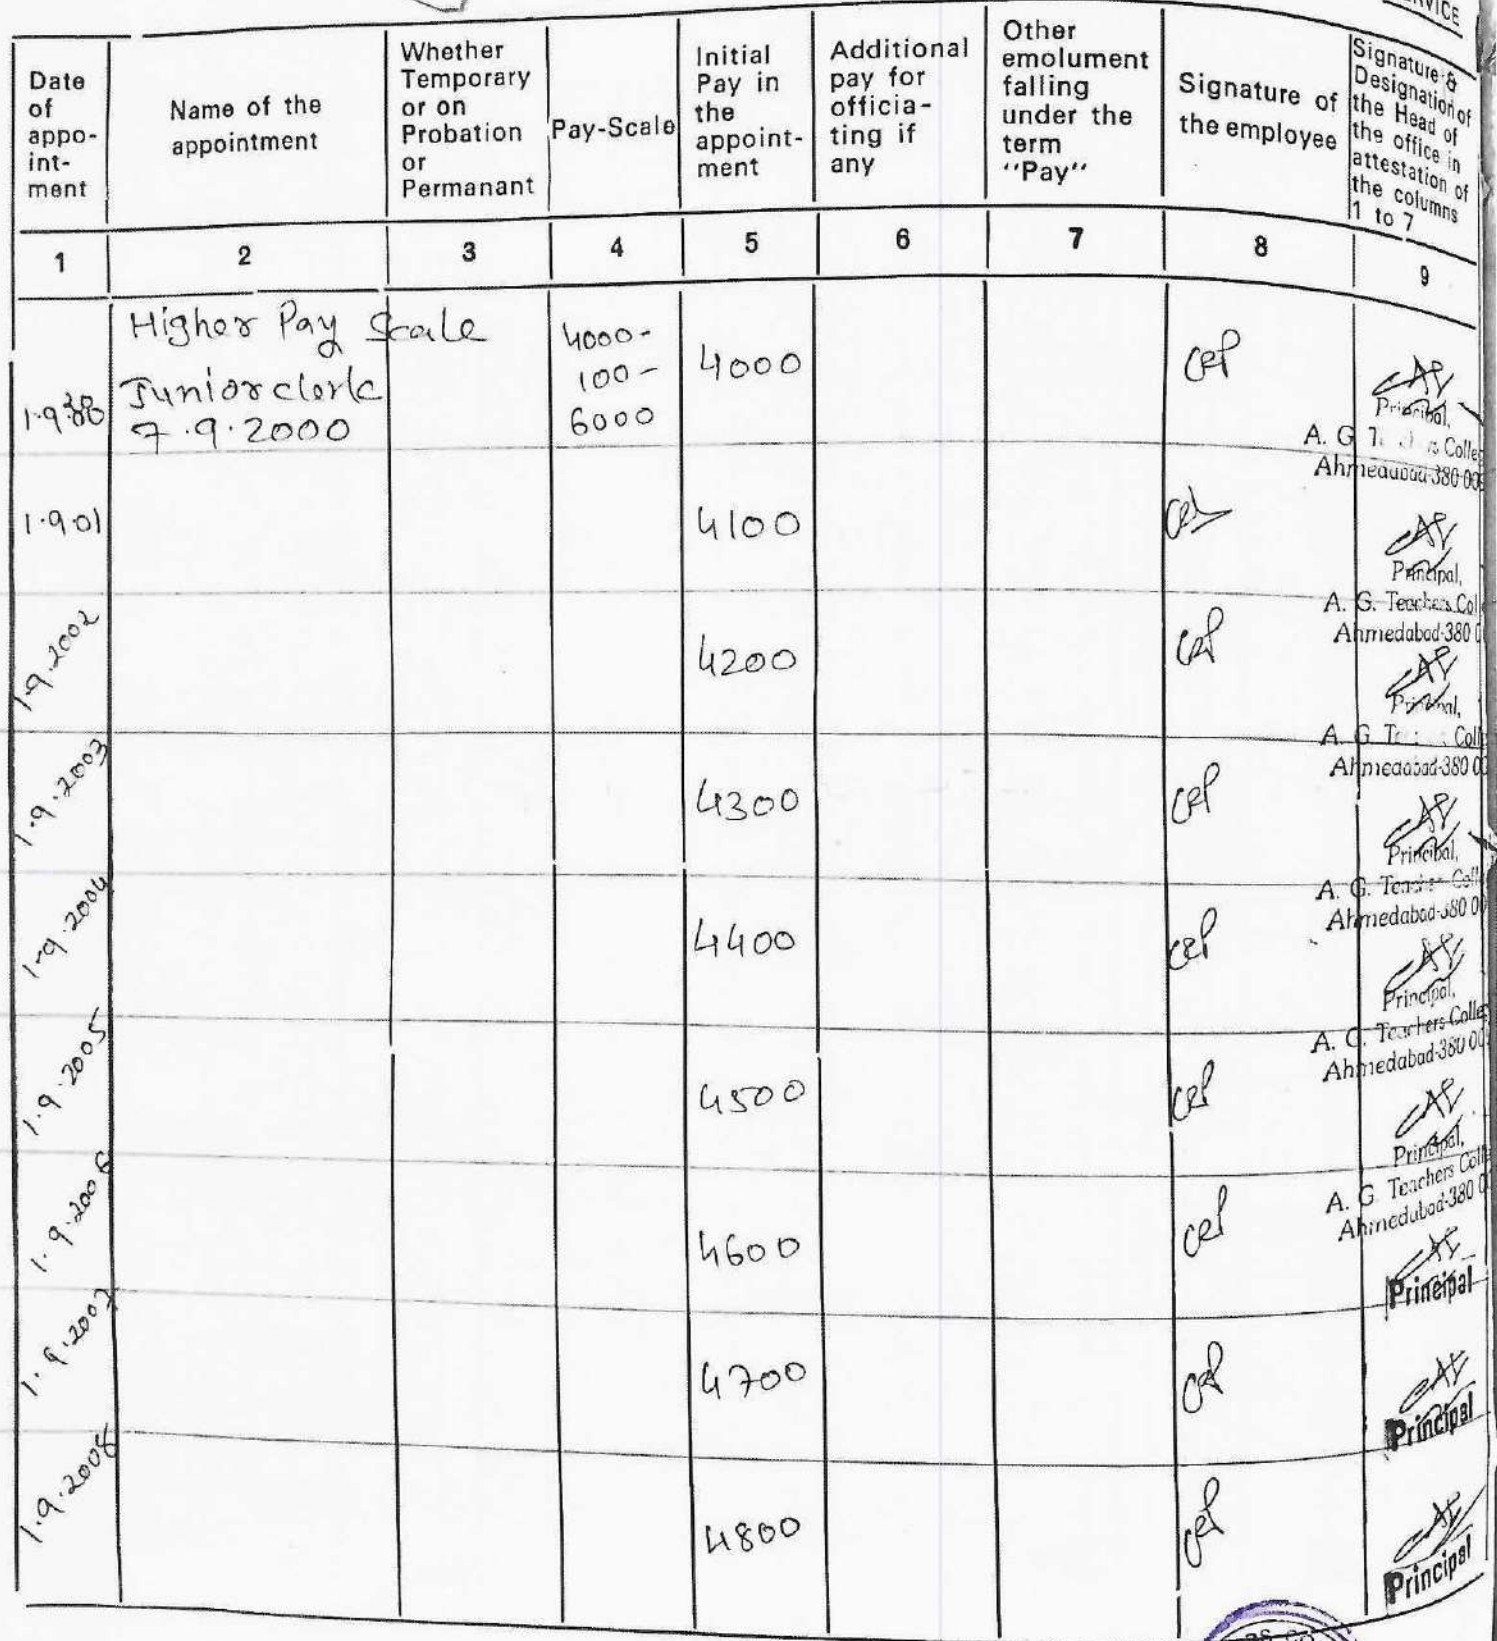 Date of appo-int-ment
Name of the appointment
Whether Temporary or on Probation or Permanant
Pay-Scale
Initial Pay in the appoint-ment
Additional pay for officia-ting if any
Other emolument falling under the term "Pay"
Signature of the employee
Signature & Designation of the Head of the office in attestation of the columns 1 to 7
1 2 3 4 5 6 7 8 9
Higher Pay Scale
Junior clerk
7.9.2000
4000-
100-
6000
4000
Principal,
A. G. Colle
Ahmedabad-380 00
1.9.01
4100
Principal,
A. G. Teachers Col
Ahmedabad-380 0
1.9.2002
4200
Principal,
A. G. Coll
Ahmedabad-380 0
1.9.2003
4300
Principal,
A. G. Teacher Coll
Ahmedabad-380 00
1-9.2004
4400
Principal,
A. G. Teachers Colle
Ahmedabad-380 00
1.9.2005
4500
Principal,
A. G. Teachers Coll
Ahmedabad-380 0
1.9.2006
4600
Principal
1.9.2007
4700
Principal
1.9.2008
4800
Principal